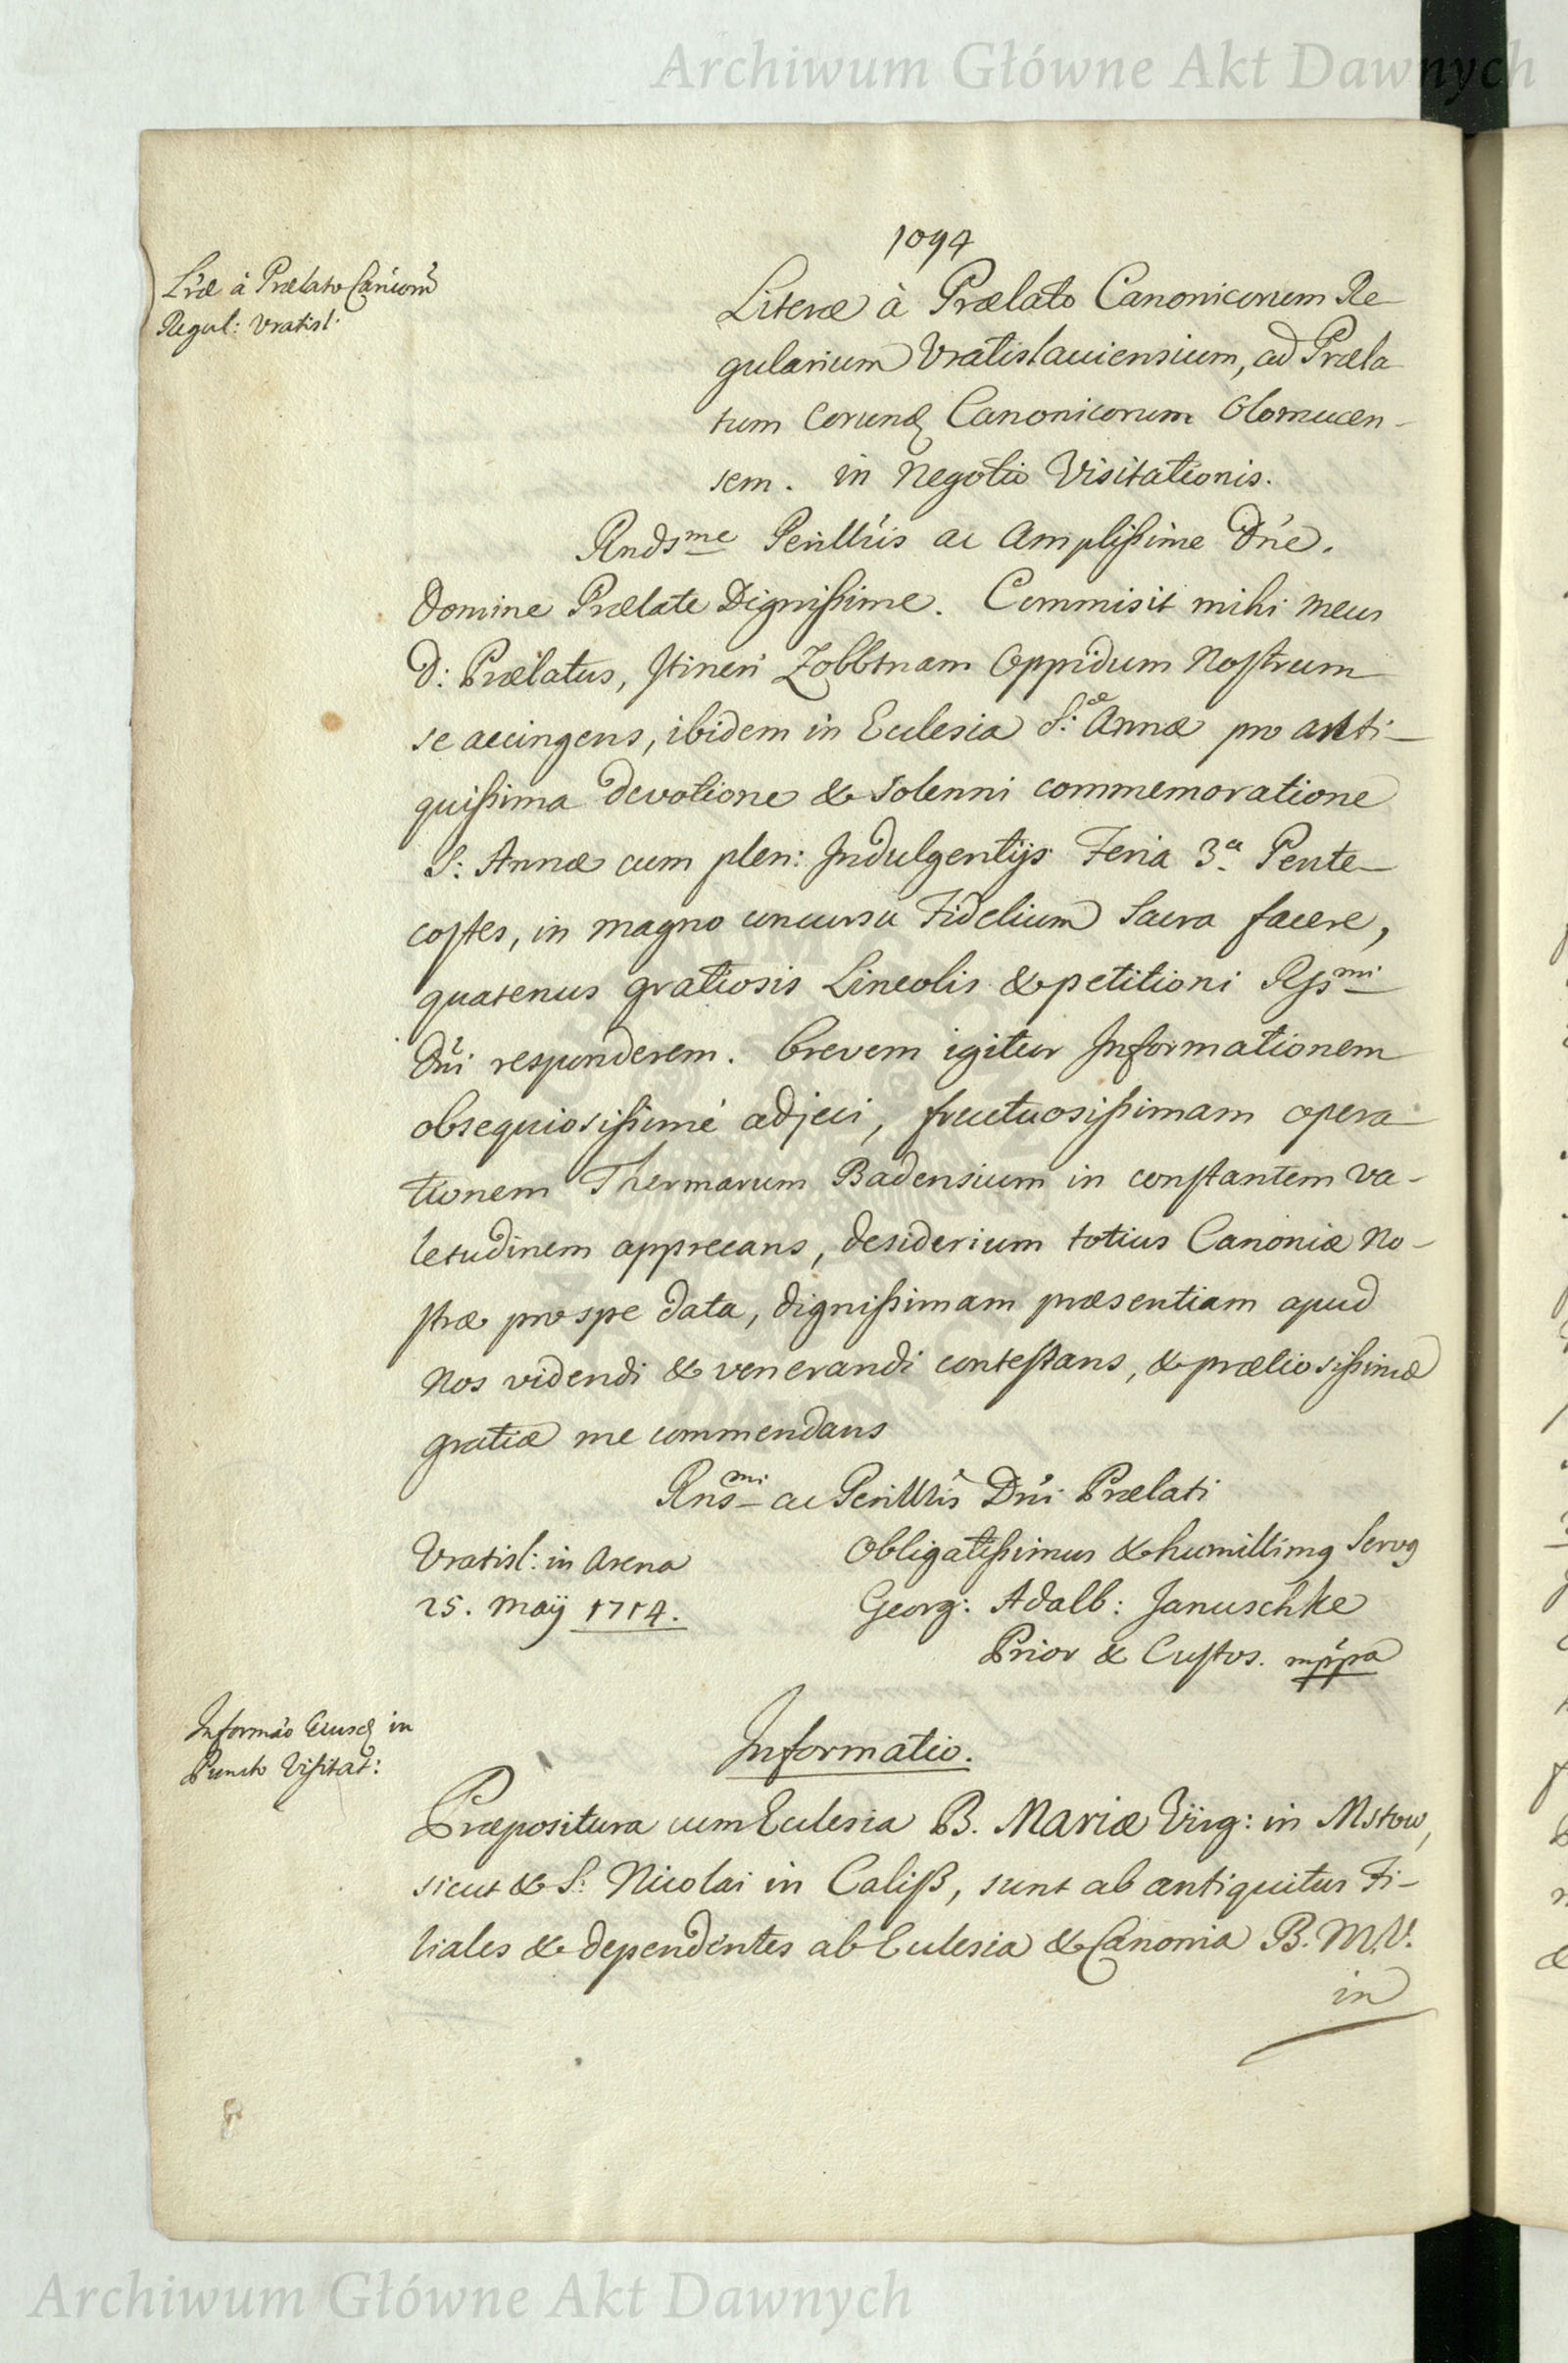 Archiwum Główne Akt Dawnych
1094
Lr̃æ à Prælato Canicorũ
Regul: Vratisl:
Literæ à Prælato Canonicorum Re-
gularium Vratislauiensium, ad Præla-
tum Eorund. Canonicorum Olomucen-
sem. in Negotio Visitationis.
Rndsme Perillr̃is ac Amplissime Dñe.
Domine Prælate Dignissime. Commisit mihi meus
D: Prælatus, Itineri Zobbtnam Oppidum Nostrum
se accingens, ibidem in Eccelesia S:æ Annæ pro anti-
quissima devotione & solenni commemoratione
S: Annæ cum plen: Indulgentijs Feria 3.a Pente-
costes, in magno concursu Fidelium Sacra facere,
quatenus gratiosis Lineolis & petitioni Rssmi
Dñi responderem. Brevem igitur Informationem
obsequiosissimè adjeci, fructuosissimam opera-
tionem Thermarum Badensium in constantem va-
letudinem apprecans, desiderium totius Canoniæ No-
stræ pro spe data, dignissimam præsentiam apud
Nos videndi & venerandi contestans, & prætiosissimæ
gratiæ me commendans
Rnsmi ac Perillr̃is Dñi Prælati
Vratisl: in Arena
25. Maÿ 1714.
Obligatissimus & humillimq Servq
Georg: Adalb: Januschke
Prior & Custos. mp̃pa
Informão Eiusd in
Puncto Visitat:
Informatio.
Præpositura cum Ecclesia B. Mariæ Virg: in Mstow,
sicut & S: Nicolai in Caliß, sunt ab antiquitus Fi-
liales & dependentes ab Ecclesia & Canonia B. M. V.
in
Archiwum Główne Akt Dawnych